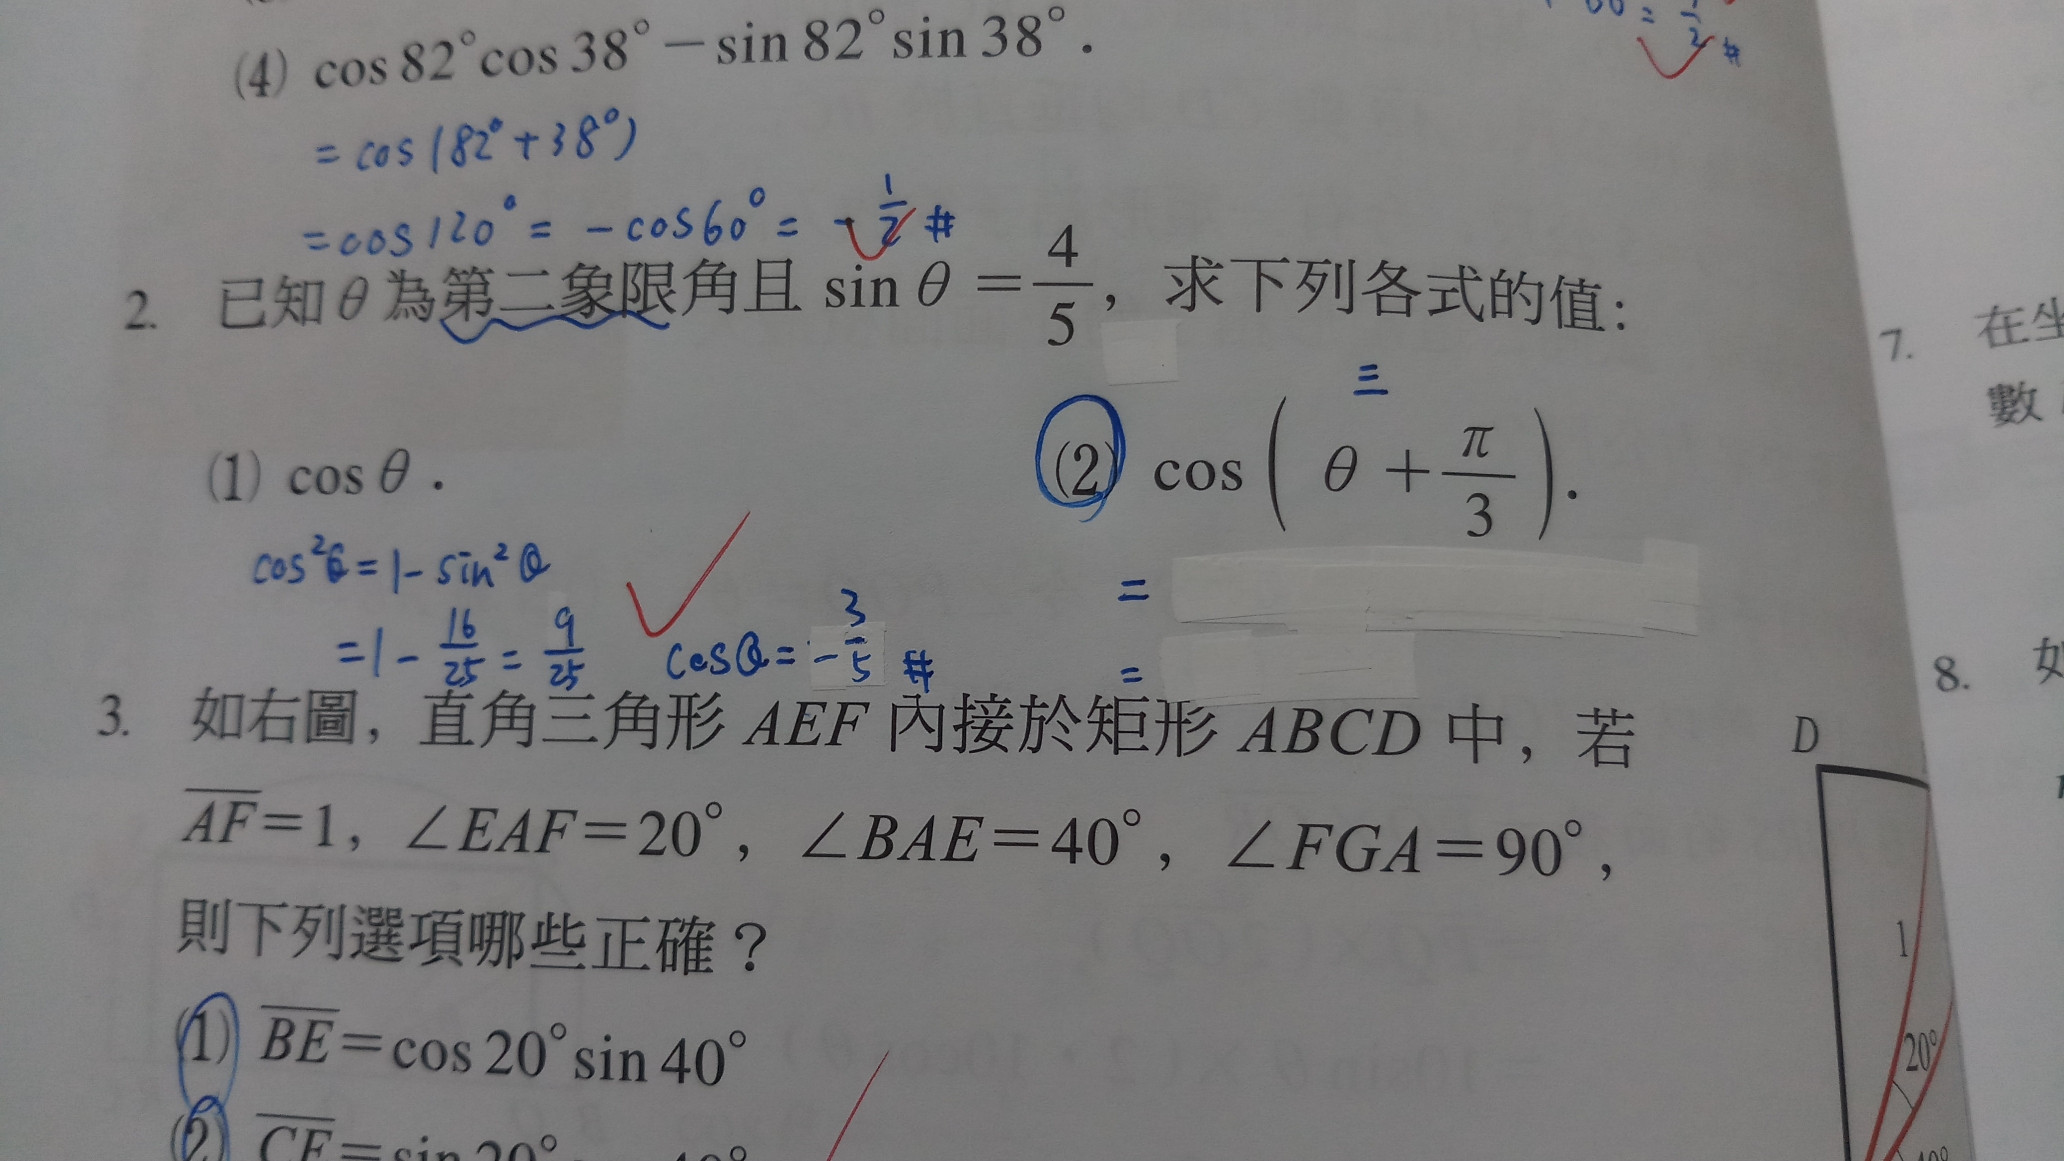 (4) cos 82° cos 38° − sin 82° sin 38°.
= cos (82° + 38°)
= cos 120° = − cos 60° = − 1/2 #
2. 已知 θ 為第二象限角且 sin θ = 4/5, 求下列各式的值:
三
(1) cos θ.
(2) cos ( θ + π/3 ).
cos²θ = 1 − sin²θ
= 1 − 16/25 = 9/25
cos θ = − 3/5 #
=
=
3. 如右圖, 直角三角形 AEF 內接於矩形 ABCD 中, 若
AF = 1, ∠EAF = 20°, ∠BAE = 40°, ∠FGA = 90°,
則下列選項哪些正確?
(1) BE = cos 20° sin 40°
(2) CF = sin 20° 40°
D
1
20°
40°
7. 在坐
數
8. 如